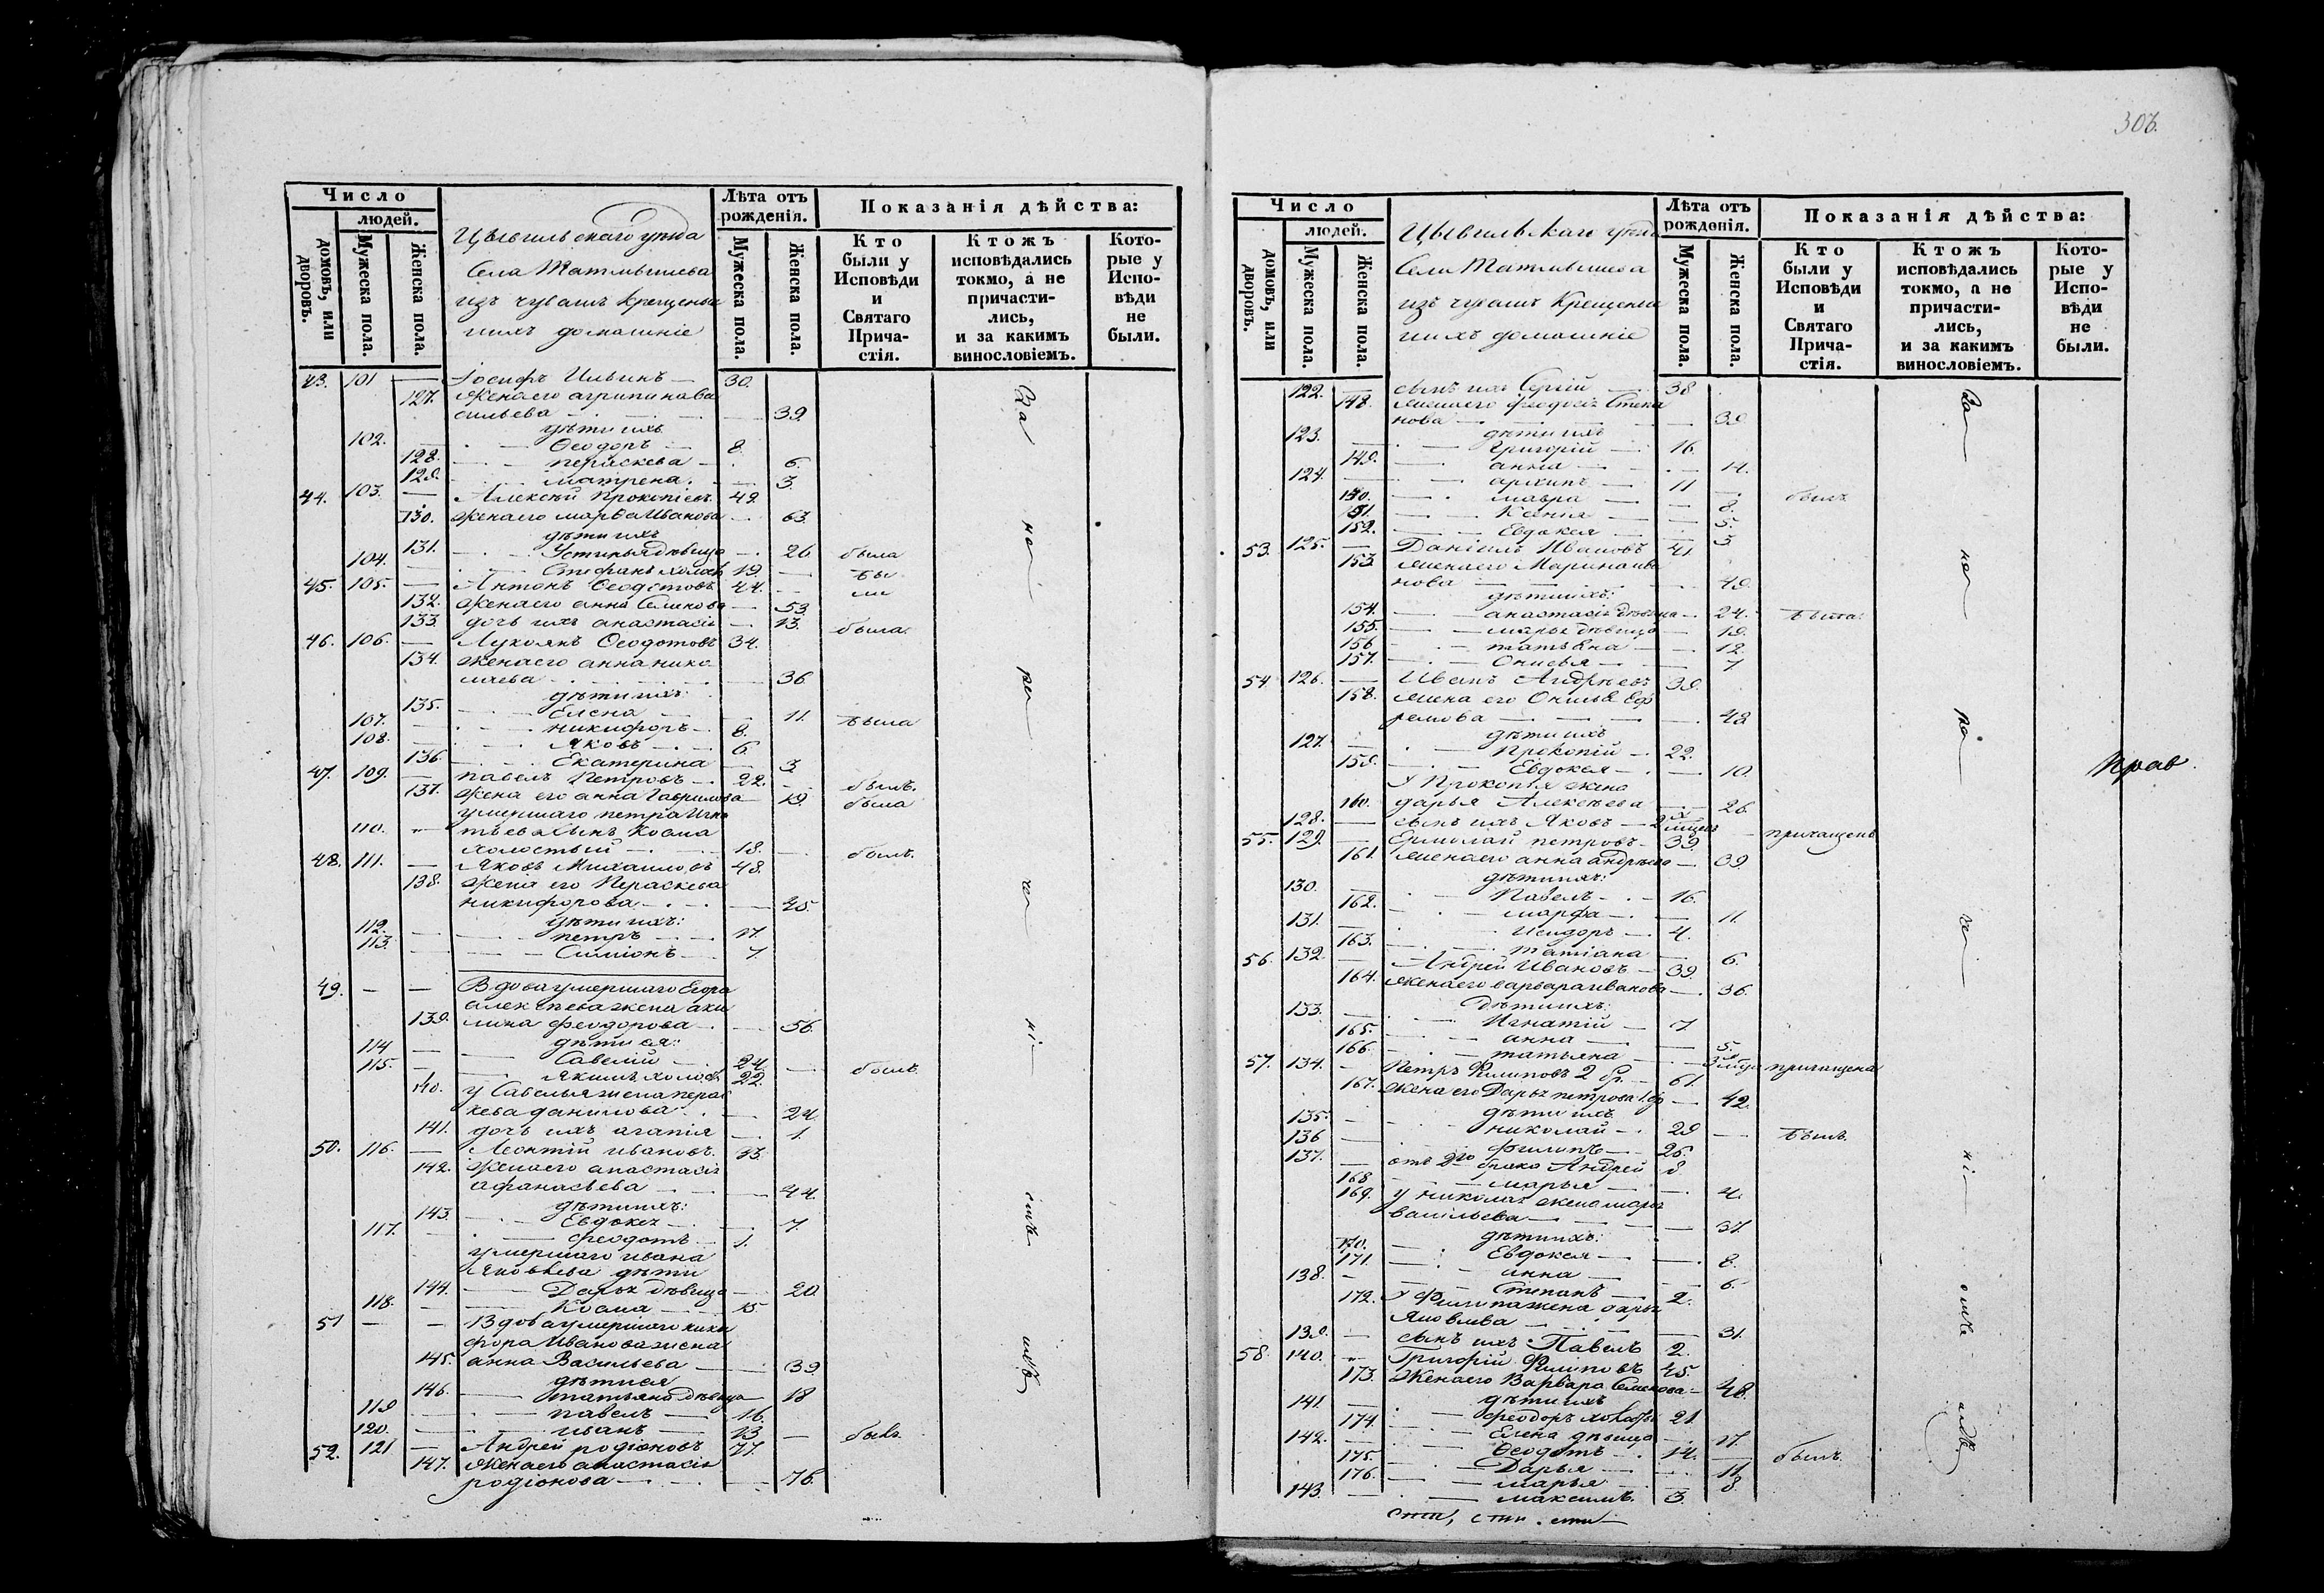 Число
людей.
домовъ, или дворовъ.
Мужеска пола.
Женска пола.
Цывильскаго уѣзда
Села
изъ чувашъ крещеныхъ
ихъ домашніе
Лѣта отъ рожденія.
Мужеска пола.
Женска пола.
Показанія дѣйства:
Кто были у Исповѣди и Святаго Прича-стія.
Ктожъ исповѣдались токмо, а не причасти-лись, и за какимъ винословіемъ.
Кото-рые у Испо-вѣди не были.
43. 101 — Іосифъ Ильинъ — 30.
127. жена его агрипина ва
сильева — 39.
дѣти ихъ
102. — Ѳеодоръ — 8.
128. — пераскева — 6.
129. — матрена. — 3.
44. 103. — Алексѣй Прокопіевъ 42
130. жена его марѳа Иванова — 63.
дѣти ихъ
131. — Устинья дѣвица — 26 была
104. — Стефанъ холост 19. —
45. 105. — Антонъ Ѳеодотовъ 44. —
132. жена его анна Семенова — 53.
133 дочь ихъ анастасія — 13. была.
46. 106. — Лукоянъ Ѳеодотовъ 34.
134. жена его анна нико
лаева — 36
дѣти ихъ:
135. — Елена — 11. была
107. — никифоръ — 8.
108. — Яковъ — 6
136 — Екатерина — 3
47. 109. — павелъ Петровъ — 22. — былъ.
137. жена его анна Гаврилова — 19. была
умершаго петра Игна
110. — тьева сынъ Косма
холостый — 18. — былъ.
48. 111. — Яковъ Михаиловъ 48.
138. жена его Пераскева
никифорова — 45.
дѣти ихъ:
112. — петръ — 17.
113. — Симіонъ — 7
49. — — Вдова умершаго Егора
алексѣева жена аки
139. лина феодорова — 56.
дѣти ея:
114 — Савелій — 24
115. — Якимъ холост 22. — былъ
140. у Савелья жена перас
кева данилова. — 24.
141. дочь ихъ агапія — 1.
50. 116. — Леонтій ивановъ. 33.
142. жена его анастасія
афанасьева — 44.
дѣти ихъ:
143. — Евдокея — 7.
117. — феодотъ — 1.
умершаго ивана
Яковлева дѣти
144. — Дарья дѣвица — 20.
118. — Косма — 15
51 — — Вдова умершаго ники
фора Иванова жена
145. анна Васильева — 39.
дѣти ея
146. — татьяна дѣвица — 18
119 — павелъ — 16.
120. — иванъ — 13 — былъ.
52. 121 — Андрей родіоновъ 77.
147. жена его анастасія
родіонова — 76.
306.
Число
людей.
домовъ, или дворовъ.
Мужеска пола.
Женска пола.
Цывильскаго уѣзда
Села
изъ чувашъ Крещеныхъ
ихъ домашніе
Лѣта отъ рожденія.
Мужеска пола.
Женска пола.
Показанія дѣйства:
Кто были у Исповѣди и Святаго Прича-стія.
Ктожъ исповѣдались токмо, а не причасти-лись, и за какимъ винословіемъ.
Кото-рые у Испо-вѣди не были.
122. — сынъ ихъ Сергій — 38
148. жена его феодосія Степа
нова — 39
дѣти ихъ
123. — Григорій — 16.
149. — анна — 14.
124. — архипъ — 11 — былъ
150. — мавра — 8.
151. — Ксенія — 5.
152. — Евдокея — 3
53. 125. — Даніилъ Ивановъ 41.
153. жена его Марина ива
нова — 49.
дѣти ихъ:
154. — анастасія дѣвица — 24. была.
155. — марья дѣвица — 19.
156 — татьяна — 12.
157. — Онисья — 7
54 126. — Иванъ Андреевъ 39.
158. жена его Онисья Еф
ремова — 48
дѣти ихъ
127. — Прокопій — 22.
159. — Евдокея — 10.
у Прокопія жена
160. дарья Алексѣева — 26.
128. — сынъ ихъ Яковъ — причащенъ
55. 129. — Ермолай петровъ — 39.
161. жена его анна андреева — 39.
дѣти ихъ:
130. — Павелъ — 16.
162. — марфа — 11.
131. — Исидоръ — 4.
163. — татіана — 6.
56. 132. — Андрей Ивановъ — 39.
164. жена его варвара иванова — 36.
Дѣти ихъ:
133. — Игнатій — 7.
165. — анна — 5.
166. — татьяна — причащена
57. 134. — Петръ Филиповъ 2 бр. — 61.
167. жена его Дарья петрова — 42.
дѣти ихъ
135. — николай — 29 — былъ.
136 — филипъ — 26.
137. — отъ 2го брака Андрей 8
168 — марья — 4.
169. у николая жена марья
васильева — 37.
дѣти ихъ:
170. — Евдокея — 8.
171. — анна — 6.
138. — Степанъ — 2.
172. у Филипа жена дарья
Яковлева — 31.
139. — сынъ ихъ Павелъ 2.
58. 140. — Григорій Филиповъ 45.
173. жена его Варвара Семенова — 48.
141. — дѣти ихъ
феодоръ холостъ 21
174 — Елена дѣвица — 17.
142. — Ѳеодотъ — 14. — былъ.
175. — Дарья — 11
176. — марья — 8.
143. — максимъ. 3.
За не ра че ні емъ
За не ра че ні емъ
Прав